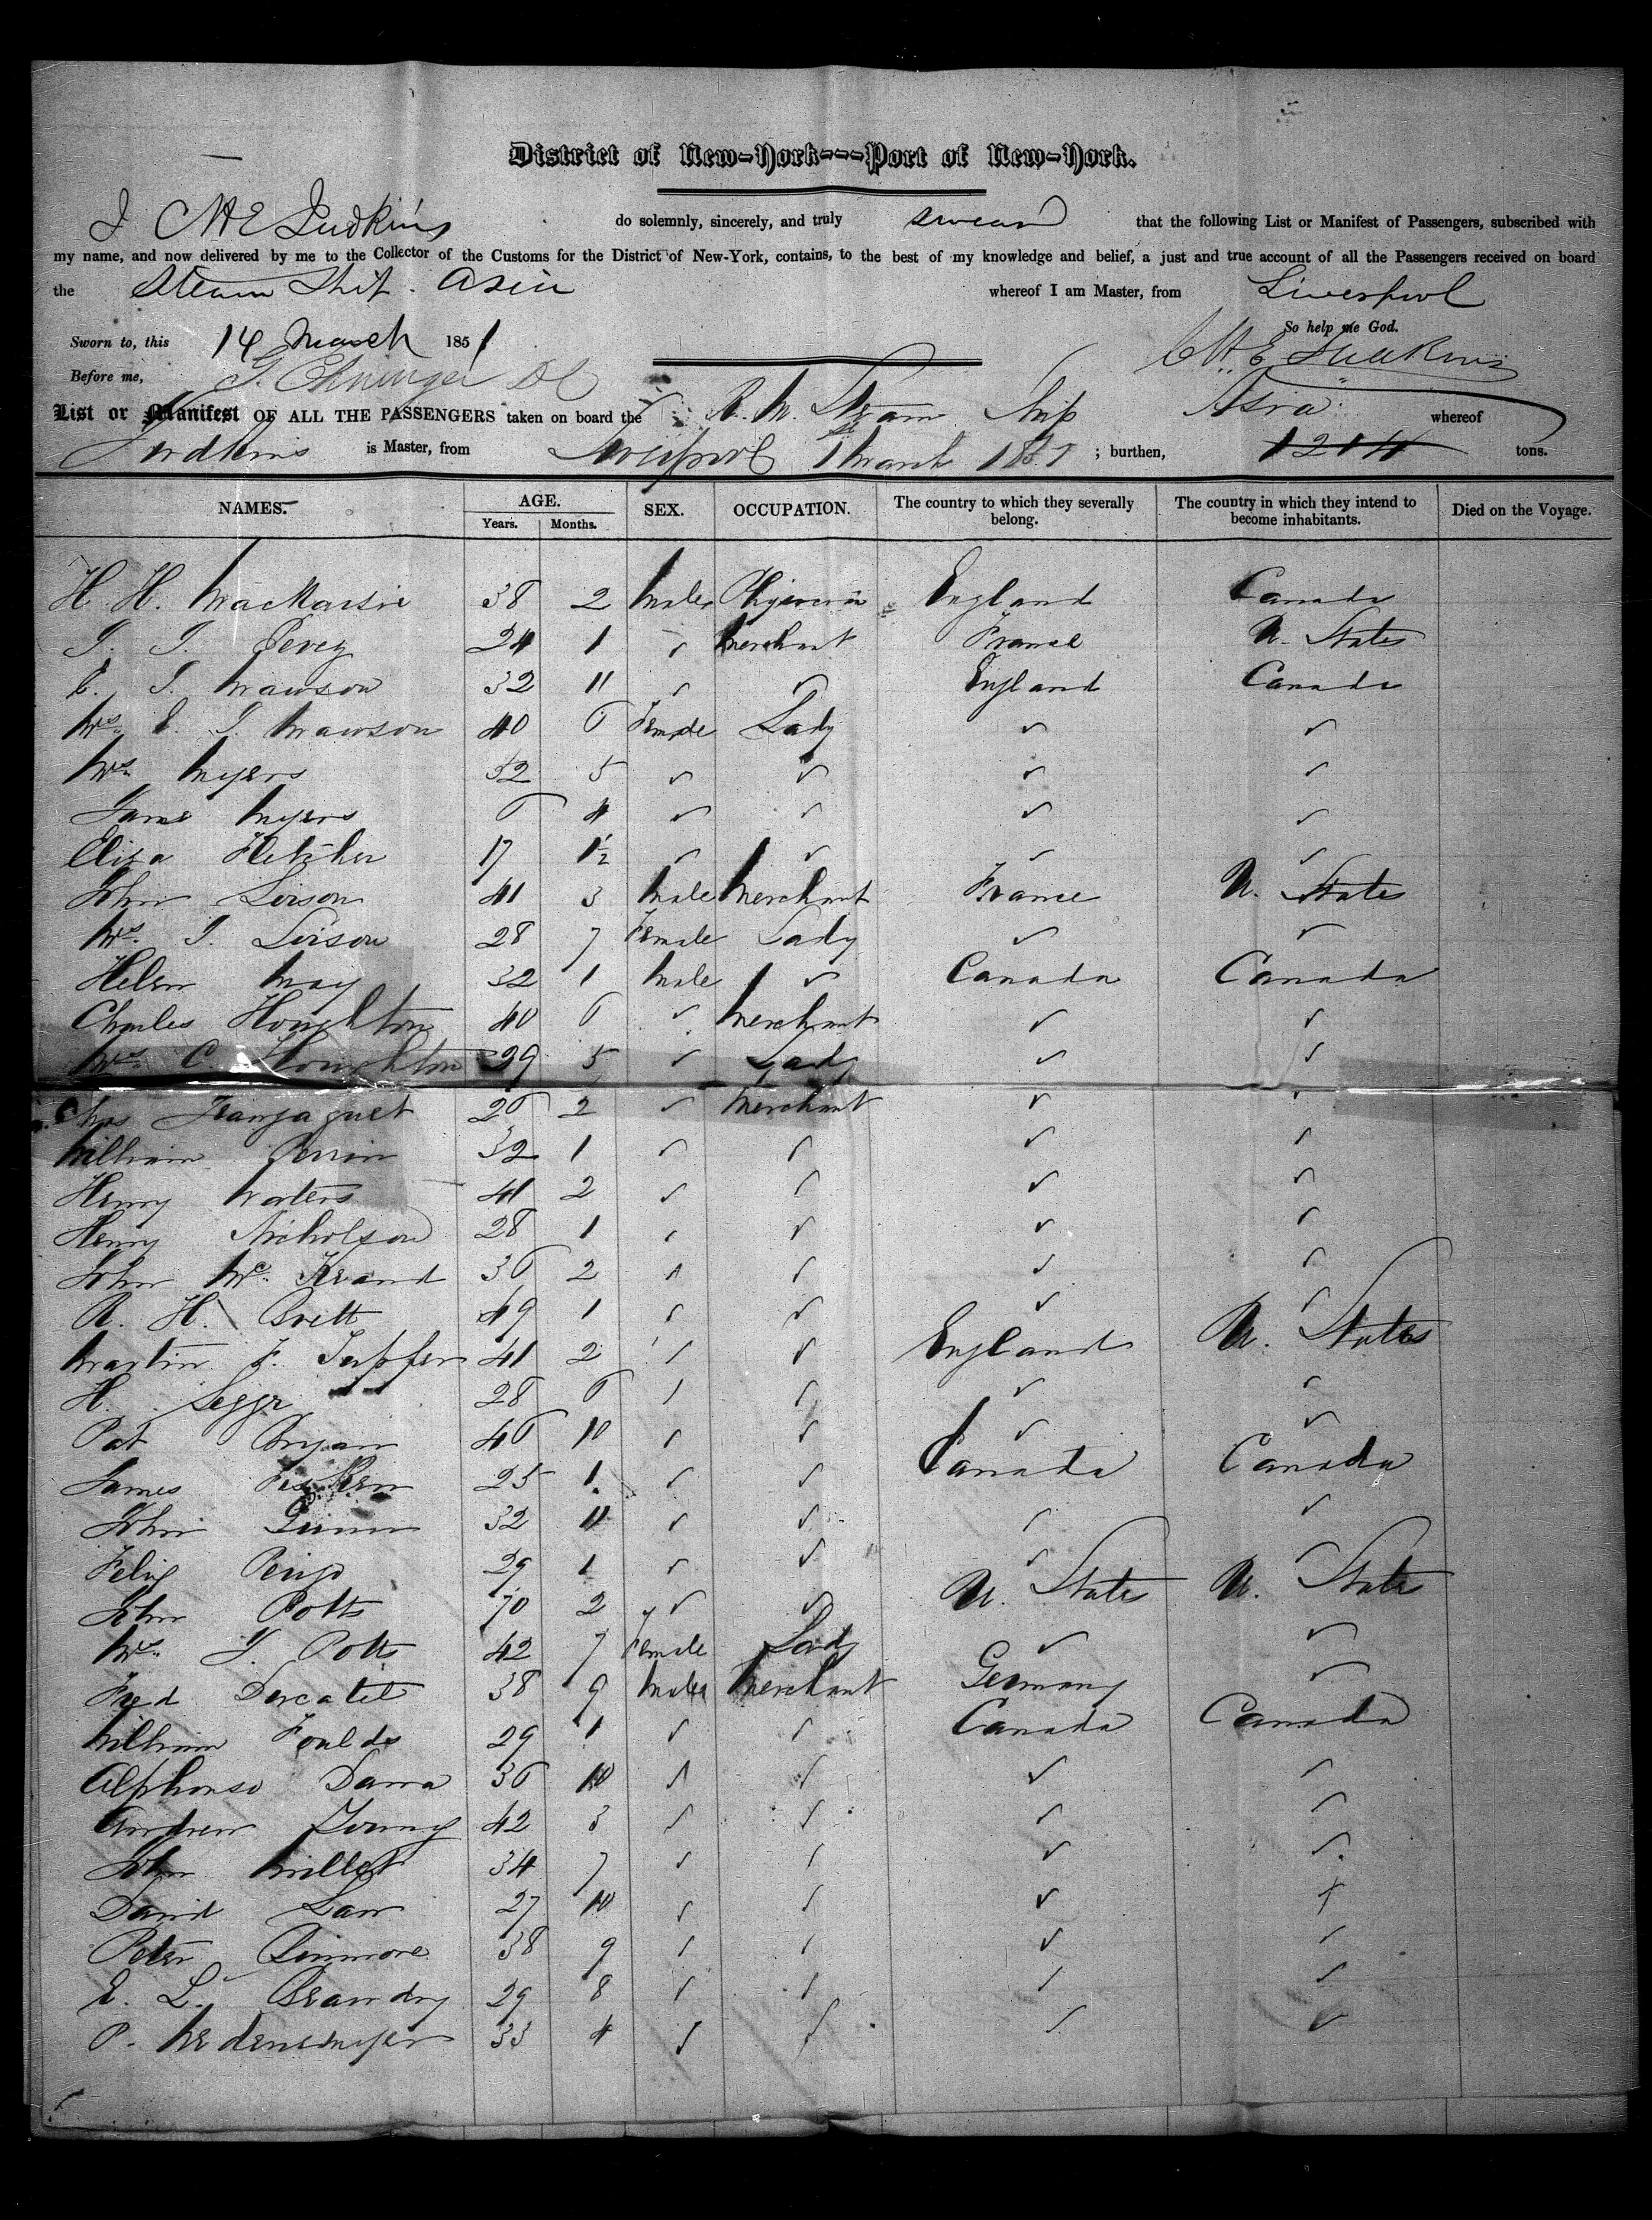 District of New-York---Port of New-York.
I C H E Judkins do solemnly, sincerely, and truly swear that the following List or Manifest of Passengers, subscribed with
my name, and now delivered by me to the Collector of the Customs for the District of New-York, contains, to the best of my knowledge and belief, a just and true account of all the Passengers received on board
the Steam Ship Asia whereof I am Master, from Liverpool
So help me God.
Sworn to, this 14 March 1851 C H E Judkins
Before me,
List or Manifest OF ALL THE PASSENGERS taken on board the R. M. Steam Ship Asia whereof
Judkins is Master, from Liverpool 1 March 1851 ; burthen, 1214 tons.
NAMES. AGE. SEX. OCCUPATION. The country to which they severally belong. The country in which they intend to become inhabitants. Died on the Voyage.
Years. Months.
H. H. 38 2 Male England Canada
24 1 ✓ Merchant France U. States
E. J. Mawson 32 11 ✓ ✓ England Canada
Mrs. E. J. Mawson 40 6 Female Lady ✓ ✓
Mrs. Myers 32 5 ✓ ✓ ✓ ✓
Jame Myers 6 4 ✓ ✓ ✓ ✓
Eliza Fletcher 17 1½ ✓ ✓ ✓ ✓
John Loison 41 3 Male Merchant France U. States
Mrs. J. Loison 28 7 Female Lady ✓ ✓
Helen May 32 1 Male ✓ Canada Canada
Charles Houghton 40 6 ✓ Merchant ✓ ✓
Mrs. C. Houghton 29 5 ✓ Lady ✓ ✓
Chas Jeanjaquet 26 2 ✓ Merchant ✓ ✓
William Perrin 32 1 ✓ ✓ ✓ ✓
Henry Waters 41 2 ✓ ✓ ✓ ✓
Henry Nicholson 28 1 ✓ ✓ ✓ ✓
John Mc. Keand 36 2 ✓ ✓ ✓ ✓
R. H. Brett 49 1 ✓ ✓ ✓ ✓
Martin F. Tupper 41 2 ✓ ✓ England U. States
H. 28 6 ✓ ✓ ✓ ✓
Pat Bryan 46 10 ✓ ✓ ✓ ✓
James 25 1 ✓ ✓ Canada Canada
John 32 11 ✓ ✓ ✓ ✓
Felix 29 1 ✓ ✓ ✓ ✓
John Potts 70 2 ✓ ✓ U. States U. States
Mrs. J. Potts 42 7 Female Lady ✓ ✓
Fred 38 9 Male Merchant Germany ✓
William Foulds 29 1 ✓ ✓ Canada Canada
Alphonso Darra 36 10 ✓ ✓ ✓ ✓
Andrew Young 42 3 ✓ ✓ ✓ ✓
John Miller 34 7 ✓ ✓ ✓ ✓
David Law 27 10 ✓ ✓ ✓ ✓
Peter 38 9 ✓ ✓ ✓ ✓
E. L. Beaudry 29 8 ✓ ✓ ✓ ✓
P. 33 4 ✓ ✓ ✓ ✓